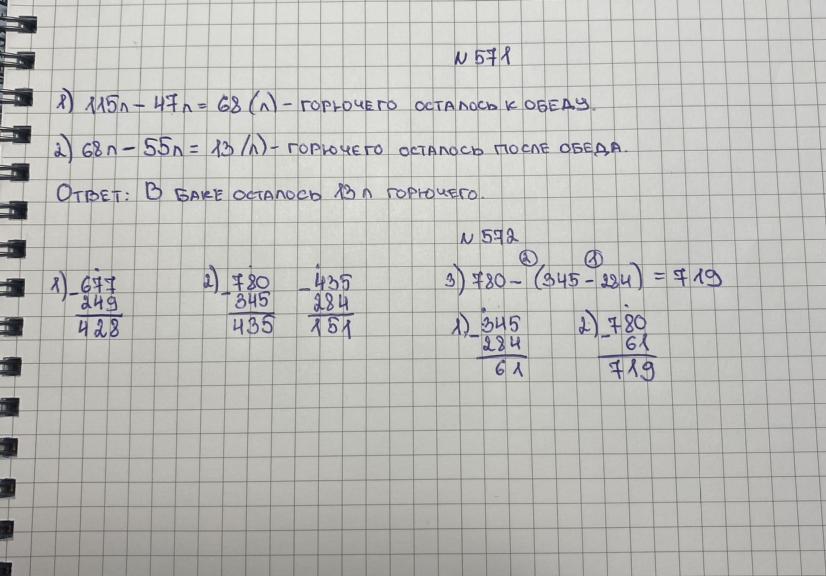 N 571
1) 115л - 47л = 68 (л) - горючего осталось к обеду.
2) 68л - 55л = 13 (л) - горючего осталось после обеда.
Ответ: В баке осталось 13 л горючего.
N 572
1) - 677
249
428
2) - 780
345
435
- 435
284
151
3) 780 - (345 - 284) = 719
2 1
1) - 345
284
61
2) - 780
61
719